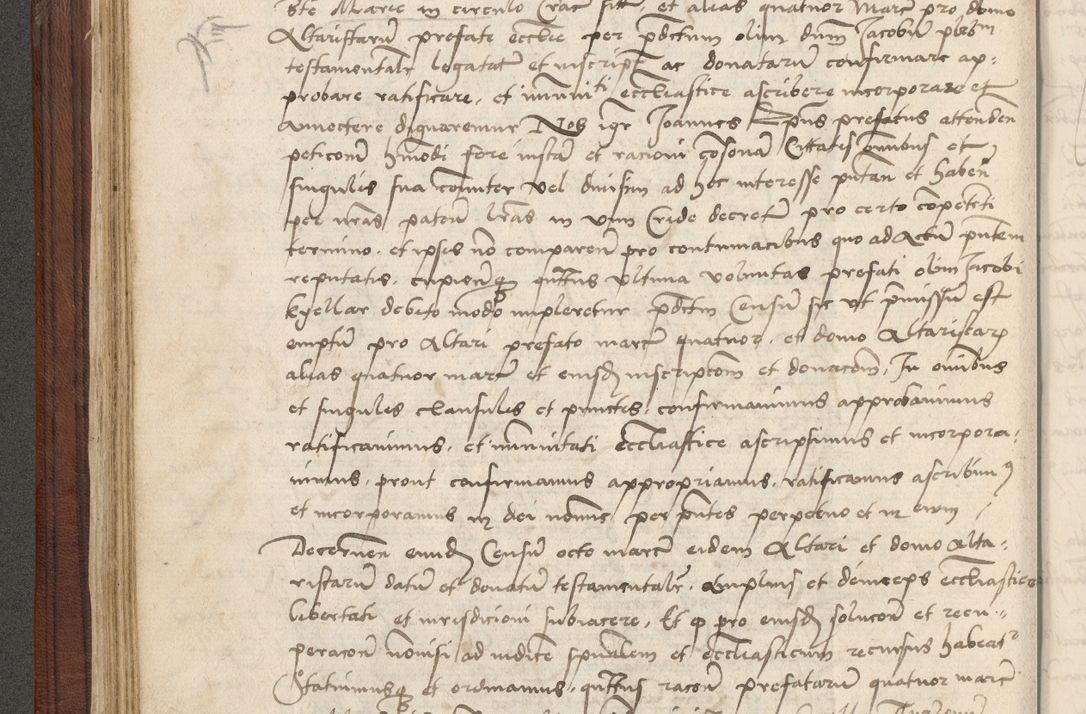 Bte Marie in circulo Crac sitt, et alias quatuor Marc pro domo
Altaristarũ prefate ecclie per p̃dictum olim dnm̃ Jacobũ pleb̃m
testamentalr̃ legatar̃ et inscript̃ ac donatarũ confirmare ap-
probare ratificare, et imunitati ecclesiastice ascribere incorporare et
annectere dignaremur Nos igr̃ Joannes Ep̃us prefatus attenden̄
peticonẽ hm̃odi fore iustã et racioni cõsonã Citatis omnibus et
singulis sua com̃uniter vel diuisim ad hoc interesse putan̄ et haben̄
per nr̃as paten̄ lr̃as in vim Cride decretũ pro certo cõpetẽti
termino, et ipsis nõ comparen̄ pro contumacibus quo ad Actũ p̃ntem
reputatis, cupien̄q̃ quatenus vltima voluntas prefati olim Jacobi
Kyellar debito modo impleretur p̃dictm̃ Censũ sic vt p̃missũ est
emptũ pro Altari prefato marcẽ quatuor, et domo Altaristarum
alias quatuor marcẽ et eiusdẽ inscripcõm et donacõm, In omnibus
et singulis clausulis et punctis, confirmauimus approbauimus
ratificauimus, et imunitati ecclesiastice ascripsimus et incorpora-
uimus, prout confirmamus appropriamus, ratificamus ascribimus
et incorporamus in dei nomine per p̃ntes perpetuo et in ewm
Decernen̄ eundẽ Censũ octo marcẽ eidem Altari et domo Alta-
ristarũ datũ et donatũ testamentalr̃, amplius et deinceps ecclesiastice
libertati et iurisdicioni subiacere, Et q̃ pro eiusdẽ solucoñ et recu-
peracoñ nonnisi ad iudicẽ spũalem et ecclesiasticum recursus habeatr̃
Statuimusq̃ et ordinamus, quatenus racoñ prefatarũ quatuor marcẽ